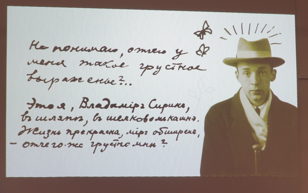 Не понимаю, отчего у
меня такое грустное
выраженье?..
Это я, Владиміръ Сиринъ,
въ шляпѣ, въ шелковомъ кашнэ.
Жизнь прекрасна, міръ обширенъ,
– отчего-же грустно мнѣ?